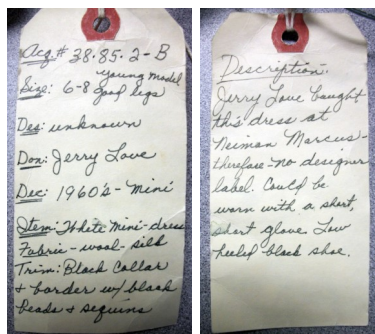 Acq.# 38.85.2-B
young model
Size: 6-8 good legs
Des: unknown
Don: Jerry Love
Dec: 1960's - Mini
Item: White mini-dress
Fabric - wool - silk
Trim: Black Collar
+ border w/ black
beads + sequins
Description:
Jerry Love bought
this dress at
Neiman Marcus -
therefore - no designer
label. Could be
worn with a short,
short glove. Low
heeled black shoe.